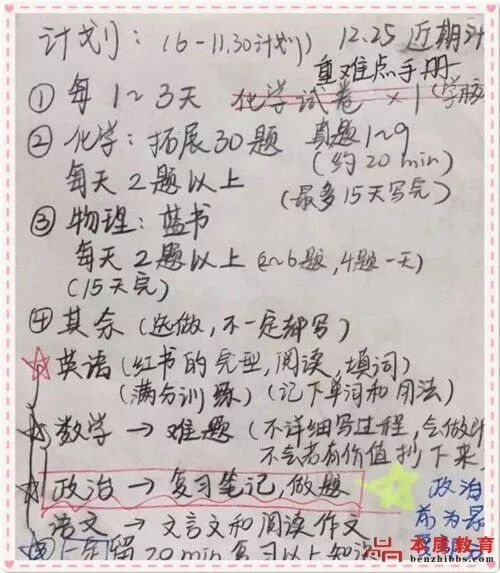 计划：（6-11.30计划） 12.25 近期计
重难点手册
① 每 1~3天 化学试卷 ×1（学校
② 化学：拓展30题 真题1~9
（约20 min）
每天2题以上
（最多15天写完）
③ 物理：蓝书
每天2题以上（2~6题，4题一天）
（15天完）
④ 其余（选做，不一定都写）
英语（红书的完型，阅读，填词）
（满分训练）（记下单词和用法）
数学 → 难题（不详细写过程，会做即
不会若有价值抄下来
政治 → 复习笔记，做题
政治
语文 → 文言文和阅读作文
前为
留20min复习以上知识
本质教育
benzhibbs.com